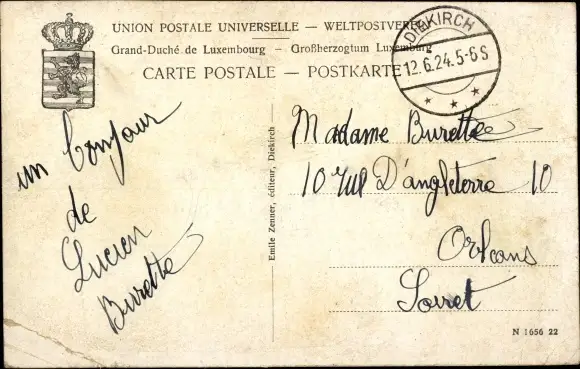 UNION POSTALE UNIVERSELLE — WELTPOSTVEREIN
Grand-Duché de Luxembourg — Großherzogtum Luxemburg
CARTE POSTALE — POSTKARTE
DIEKIRCH
12.6.24.5-6S
un bonjour
de
Lucien
Burette
Emile Zenner, éditeur, Diekirch
Madame Burette
10 rue D'angleterre 10
Orleans
Loiret
N 1656 22